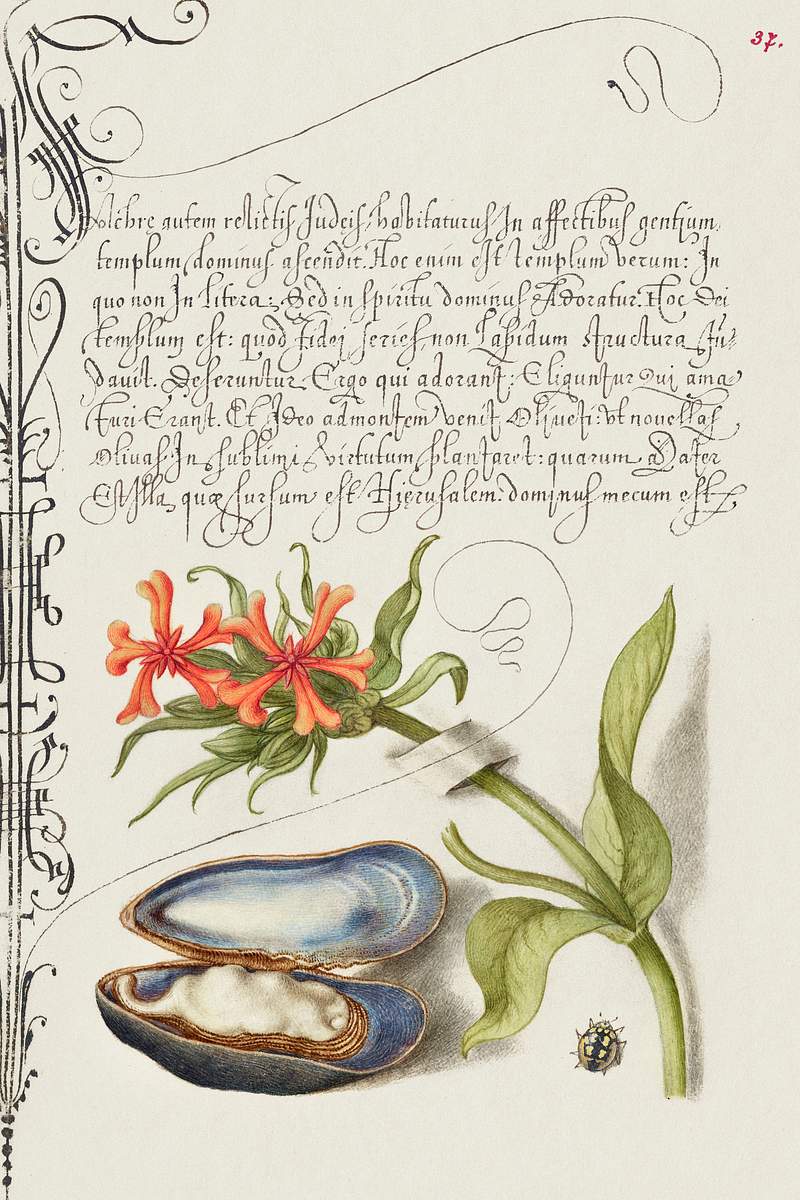 37.
autem relictis Judeis, habitaturus In affectibus gentium
templum dominus ascendit. Hoc enim est templum verum: In
quo non In litera: Sed in spiritu dominus Adoratur. Hoc Dei
templum est: quod Fidei series, non Lapidum structura fũ=
dauit. Deseruntur Ergo qui adorant: Eliguntur Qui ama=
turi Erant. Et Ideo ad montem venit Oliueti: vt nouellas
Oliuas In sublimi virtutum plantaret: quarum Mater
Est Illa, quæ sursum est Hierusalem: dominus mecum est